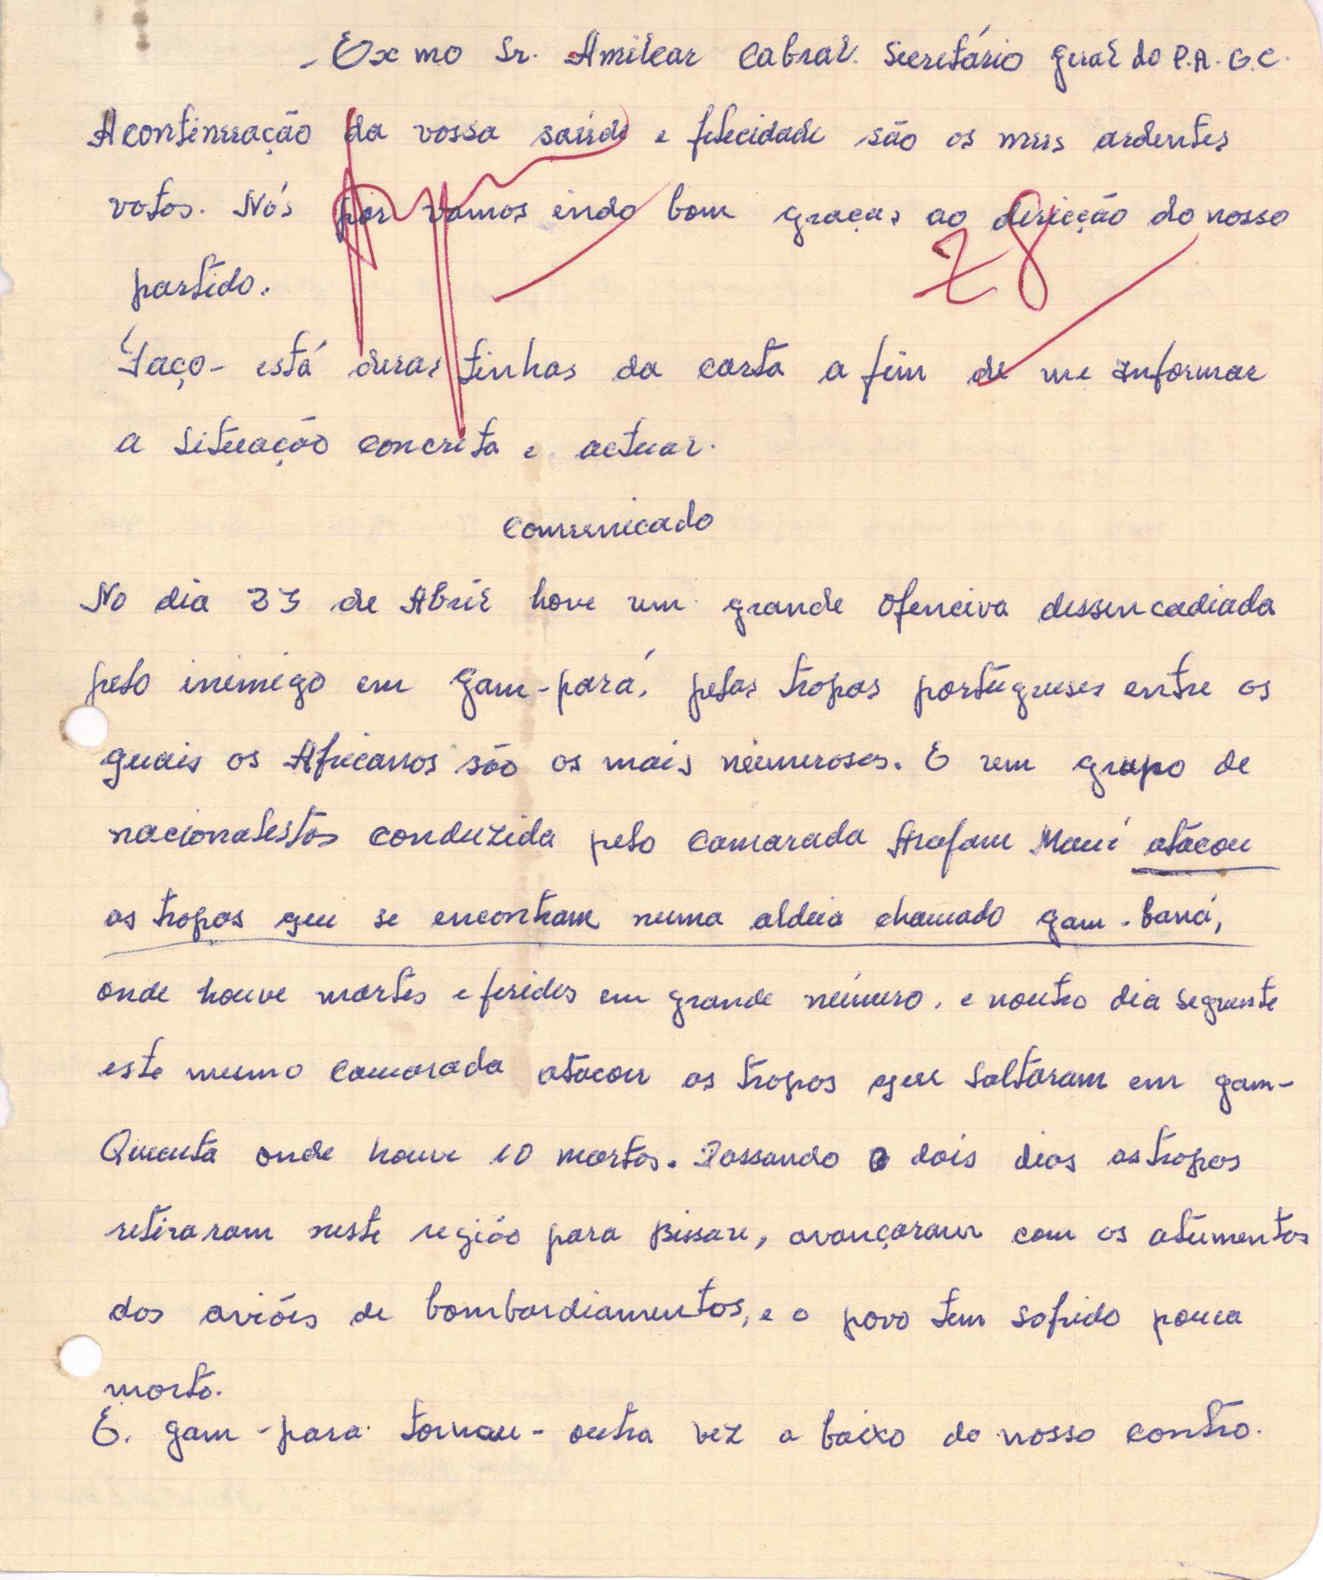 - Ex mo Sr. Amilcar Cabral. Secretário geral do P.A.G.C.
A continuação da vossa saúde e felecidade são os meus ardentes
votos. Nós por vamos indo bom graças ao direcção do nosso
partido.
Faço- está duras linhas da carta a fim de me informar
a situação concreta e actuar.
28
Comunicado
No dia 23 de Abril hove um grande ofenciva dessencadiada
pelo inimigo em gam-pará, pelas tropas portugueses entre os
quais os Africanos são os mais númerosos. E um grupo de
nacionalistas conduzida pelo camarada Arafam Mané atacou
as tropas que se encontram numa aldeia chamado gam-baná,
onde houve mortes e ferides em grande número, e noutro dia seguente
este mesmo camarada atacou as tropas que saltaram em gam-
Quenta onde houve 10 mortos. Passando o dois dias as tropas
retiraram neste região para Bissau, avançaram com os atumentos
dos aviões de bombardiamentos, e o povo tem sofrido pouca
morto.
E. gam-para tornau- outra vez a baixo do nosso contro.